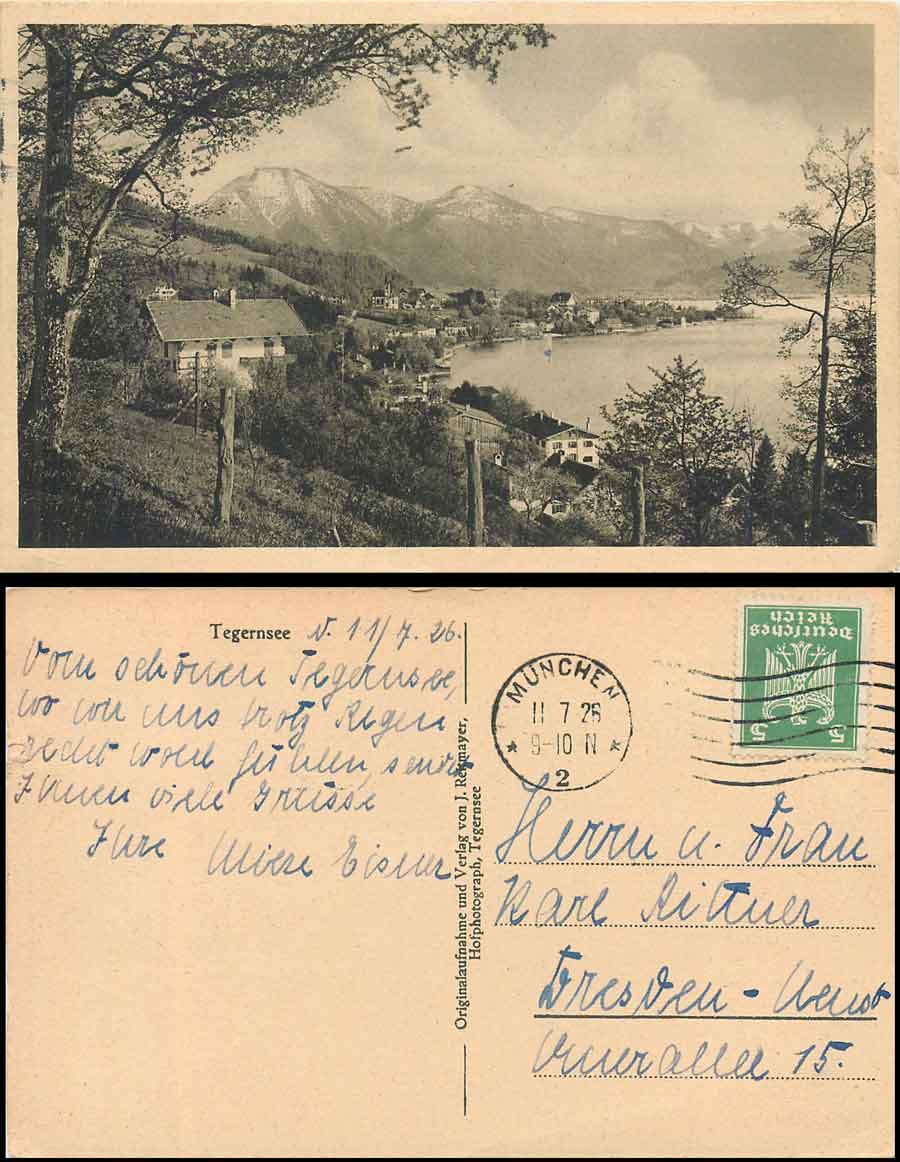 Tegernsee d. 11/7. 26.
Vom schönen Tegernsee,
wo wir uns trotz Regen
recht wohl fühlen, sendet
Ihnen viele Grüsse
Ihre Eisner
Originalaufnahme und Verlag von J. Reitmayer,
Hofphotograph, Tegernsee
MÜNCHEN
11 7 26
9-10 N
* *
2
Deutsches
Reich
5 5
Herrn u. Frau
Karl Rittner
Dresden-
15.